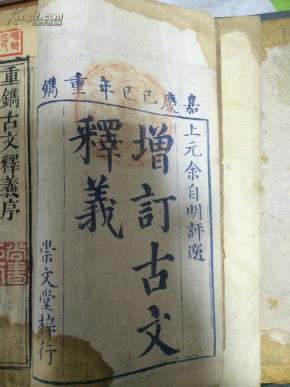 嘉慶己巳年重鐫
上元余自明評選
增訂古文
釋義
崇文堂梓行
重鐫古文釋義序